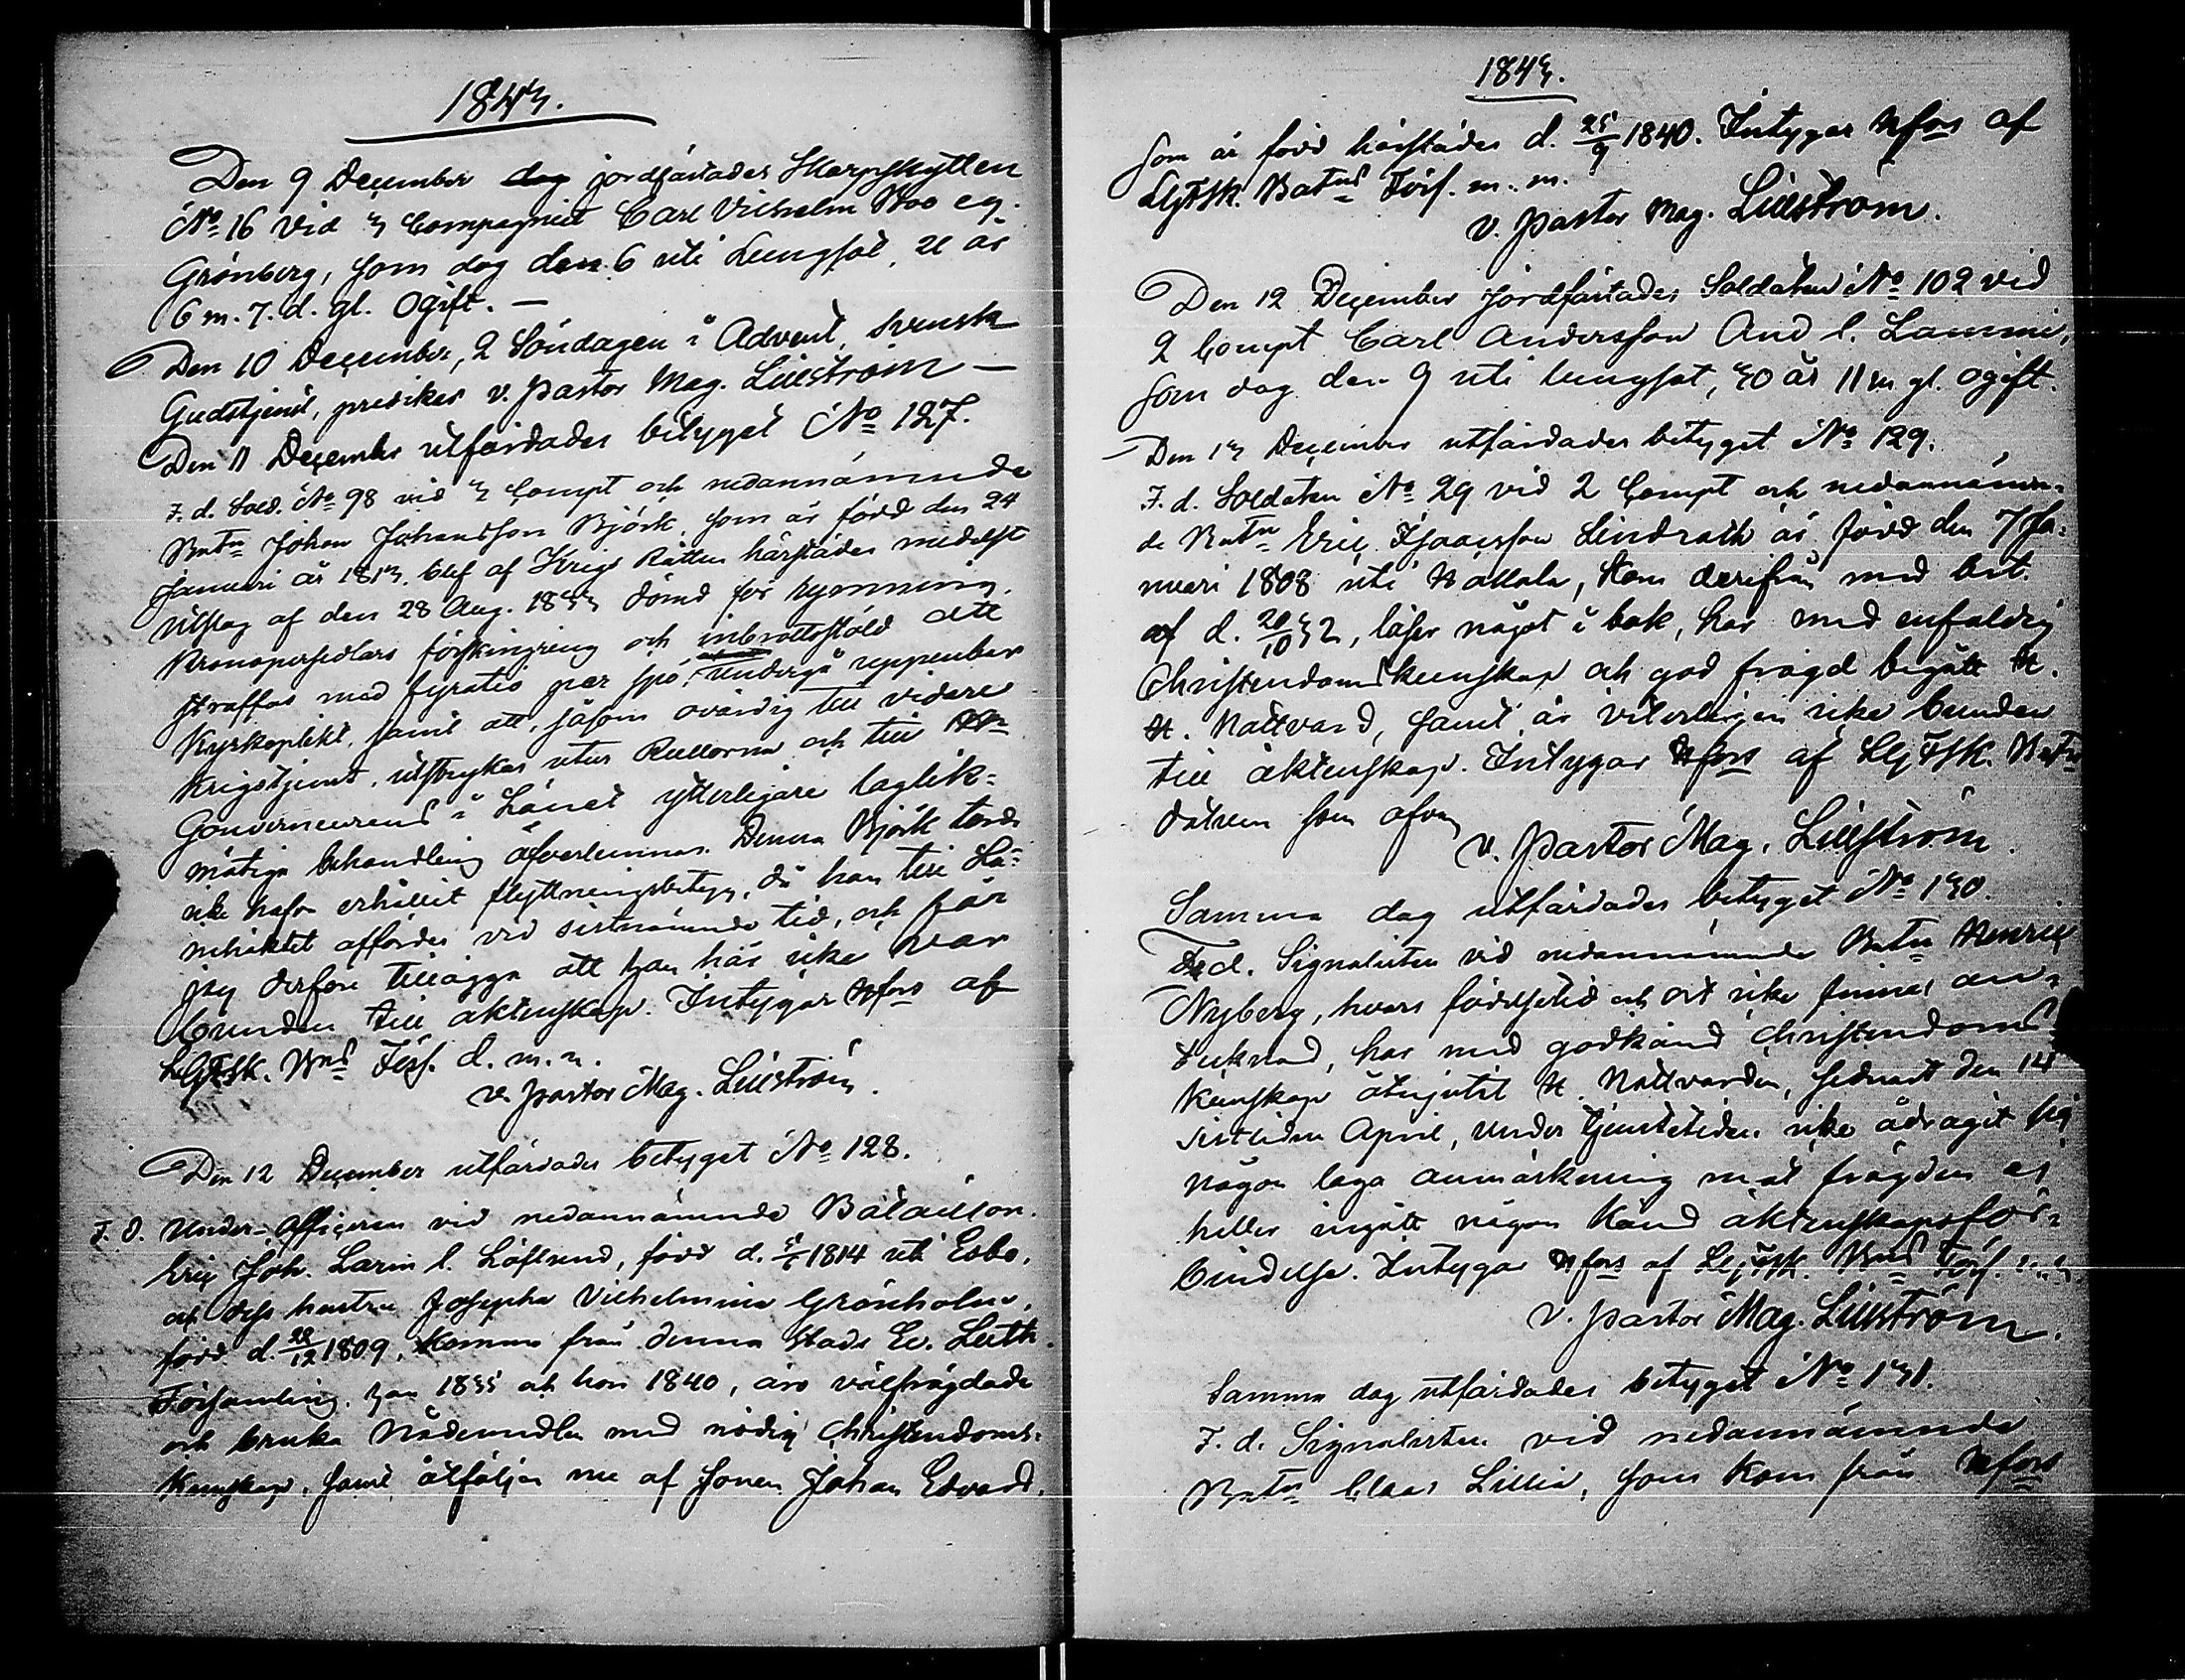 1843.
Den 9 December dog jordfästades Skarpskytten
No 16 vid 3 Compagniet Carl Vilhelm Boo eg.
Grönberg, som dog den 6 uti Lungsot, 21 år
6 m. 7. d. gl. Ogift. —
Den 10 December, 2 Söndagen i Advent, Svensk
Gudstjenst, predikes v. Pastor Mag. Lillström —
Den 11 December utfärdades betyget No 127.
F. d. Sold. No 98 vid 3 Compt och nedannämnde
Batn Johan Johansson Björk, som är född den 24
Januari år 1813, blef af Krigs Rätten härstädes medelst
utslag af den 28 Aug. 1833 dömd för rymning,
Kronopersedlars förskingring och inbrottsstöld att
straffas med fyratio par spö, undergå uppenbar
Kyrkoplikt, samt att, såsom ovärdig till vidare
Krigstjenst, utstrykas utur Rullorna och till Hr
Gouverneurens i Länet ytterligare laglik-
mätiga behandling öfverlemnas. Denna Björk torde
icke hafva erhållit flyttningsbetyg, då han till Lä-
nehäktet affördes vid sistnämnde tid, och får
jag derföre tillägga att han här icke var
bunden till äktenskap. Intygar Hfors af
LGFSk. Bns Förs. d. m. n.
v. Pastor Mag. Lillström.
Den 12 December utfärdades betyget No 128.
F. d. Under-Officeren vid nedannämnde Bataillon
Eric Joh. Larin l. Löflund, född d. 1814 uti Esbo,
och dess hustru Josepha Vilhelmina Grönholm,
född d. 22/12 1809, komna från denna Stads Ev. Luth.
Församling, han 1835 och hon 1840, äro välfrägdade
och bruka Nådemedlen med nödig Christendoms-
Kunskap, samt åtföljas nu af sonen Johan Edvard,
1843.
som är född härstädes d. 25/9 1840. Intygar Hfors af
LGFSk. Batns Förs. m. m.
v. Pastor Mag. Lillström.
Den 12 December jordfästades Soldaten No 102 vid
2 Compt Carl Andersson And l. Lammi,
som dog den 9 uti lungsot, 30 år 11 m gl. ogift.
Den 13 December utfärdades betyget No 129.
F. d. Soldaten No 29 vid 2 Compt och nedannämn-
de Batn Eric Isaacsson Lindroth är född den 7 Ja-
nuari 1808 uti Hattula, kom derifrån med bet.
af d. 20/10 32, läser något i bok, har med enfaldig
Christendomskunskap och god frägd begått H.
H. Nattvard, samt är veterligen icke bunden
till äktenskap. Intygar Hfors af LGFSk. Batn
datum som ofvan
v. Pastor Mag. Lillström.
Samma dag utfärdades betyget No 130.
F. d. Signalisten vid nedannämnde Batn Henric
Nyberg, hvars födelsetid och ort icke finnes an-
tecknad, har med godkänd Christendoms-
Kunskap åtnjutit H. Nattvarden, sednast den 14
sistliden April, under tjenstetiden icke ådragit sig
någon laga anmärkning mot frägden ej
heller ingått någon känd äktenskapsför-
bindelse. Intygar Hfors af LGFSk. Bns Förs. m. m.
v. Pastor Mag. Lillström.
Samma dag utfärdades betyget No 131.
F. d. Signalisten vid nedannämnde
Batn Claes Lillia, som kom från Hfors